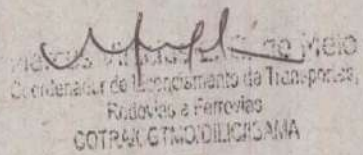 Marcus V de Melo
Coordenador de Licenciamento de Transportes,
Rodovias e Ferrovias
COTRA/CGTMO/DILIC/IBAMA